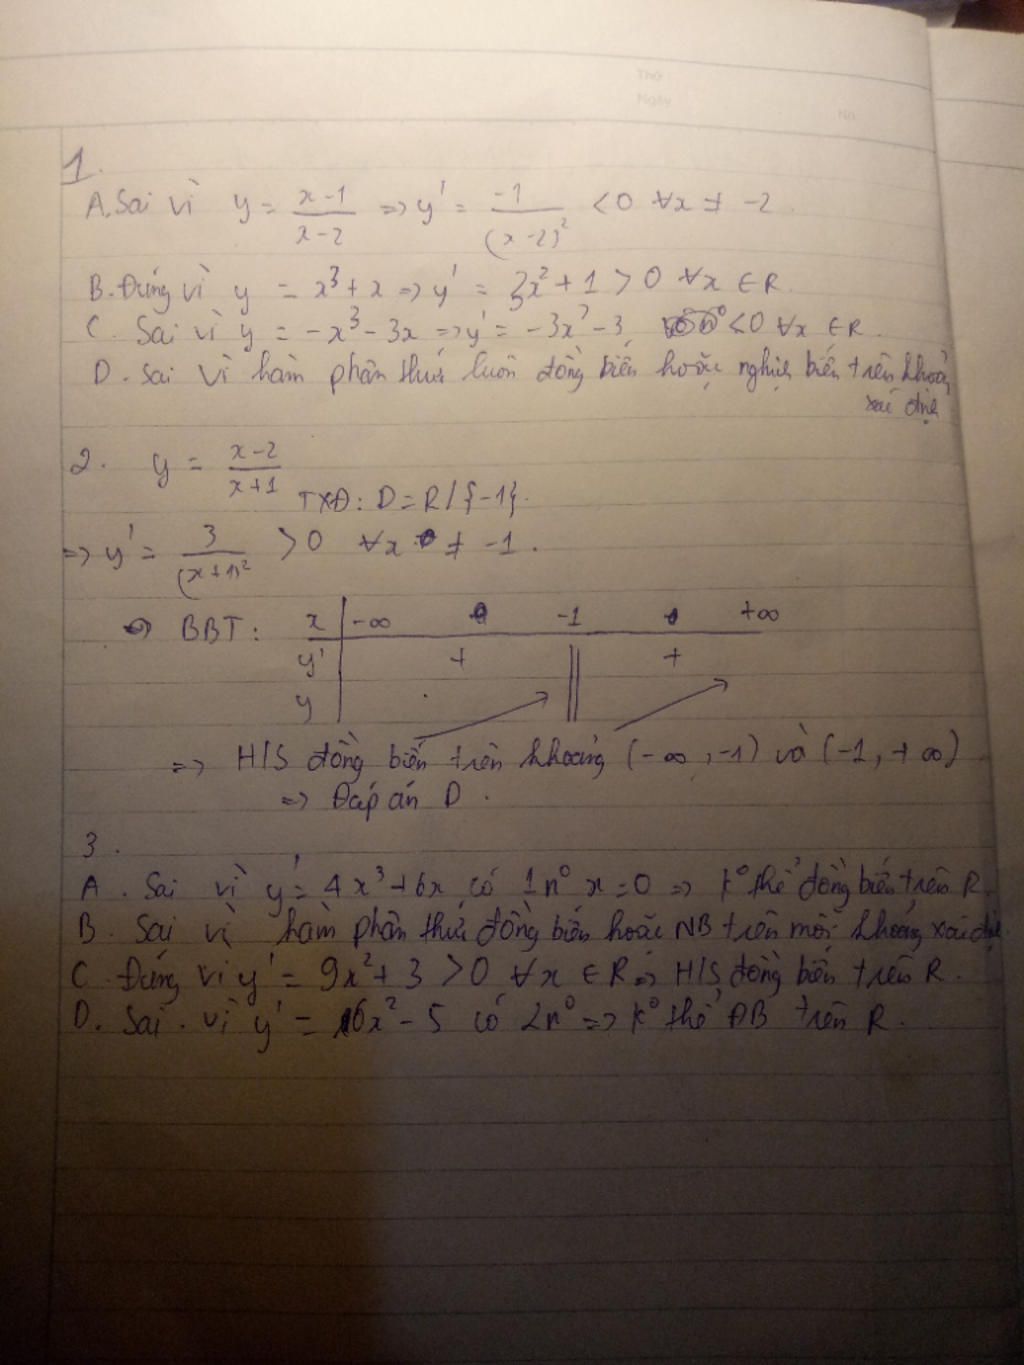 Thứ
Ngày
No
1.
A. Sai vì y = (x-1)/(x-2) => y' = -1/(x-2)² < 0 ∀x ≠ -2
B. Đúng vì y = x³ + x => y' = 3x² + 1 > 0 ∀x ∈ R.
C. Sai vì y = -x³ - 3x => y' = -3x² - 3 < 0 ∀x ∈ R.
D. Sai vì hàm phân thức luôn đồng biến hoặc nghịch biến trên khoảng
xác định
2. y = (x-2)/(x+1)
TXĐ: D = R/{-1}.
=> y' = 3/(x+1)² > 0 ∀x ≠ -1.
=> BBT: x | -∞ -1 +∞
y' | + || +
y
=> H/S đồng biến trên khoảng (-∞, -1) và (-1, +∞)
=> Đáp án D.
3.
A. Sai vì y' = 4x³ + 6x có 1 n⁰ x = 0 => k⁰ thể đồng biến trên R.
B. Sai vì hàm phân thức đồng biến hoặc NB trên mỗi khoảng xác định.
C. Đúng vì y' = 9x² + 3 > 0 ∀x ∈ R => H/S đồng biến trên R.
D. Sai. vì y' = 6x² - 5 có 2 n⁰ => k⁰ thể ĐB trên R.